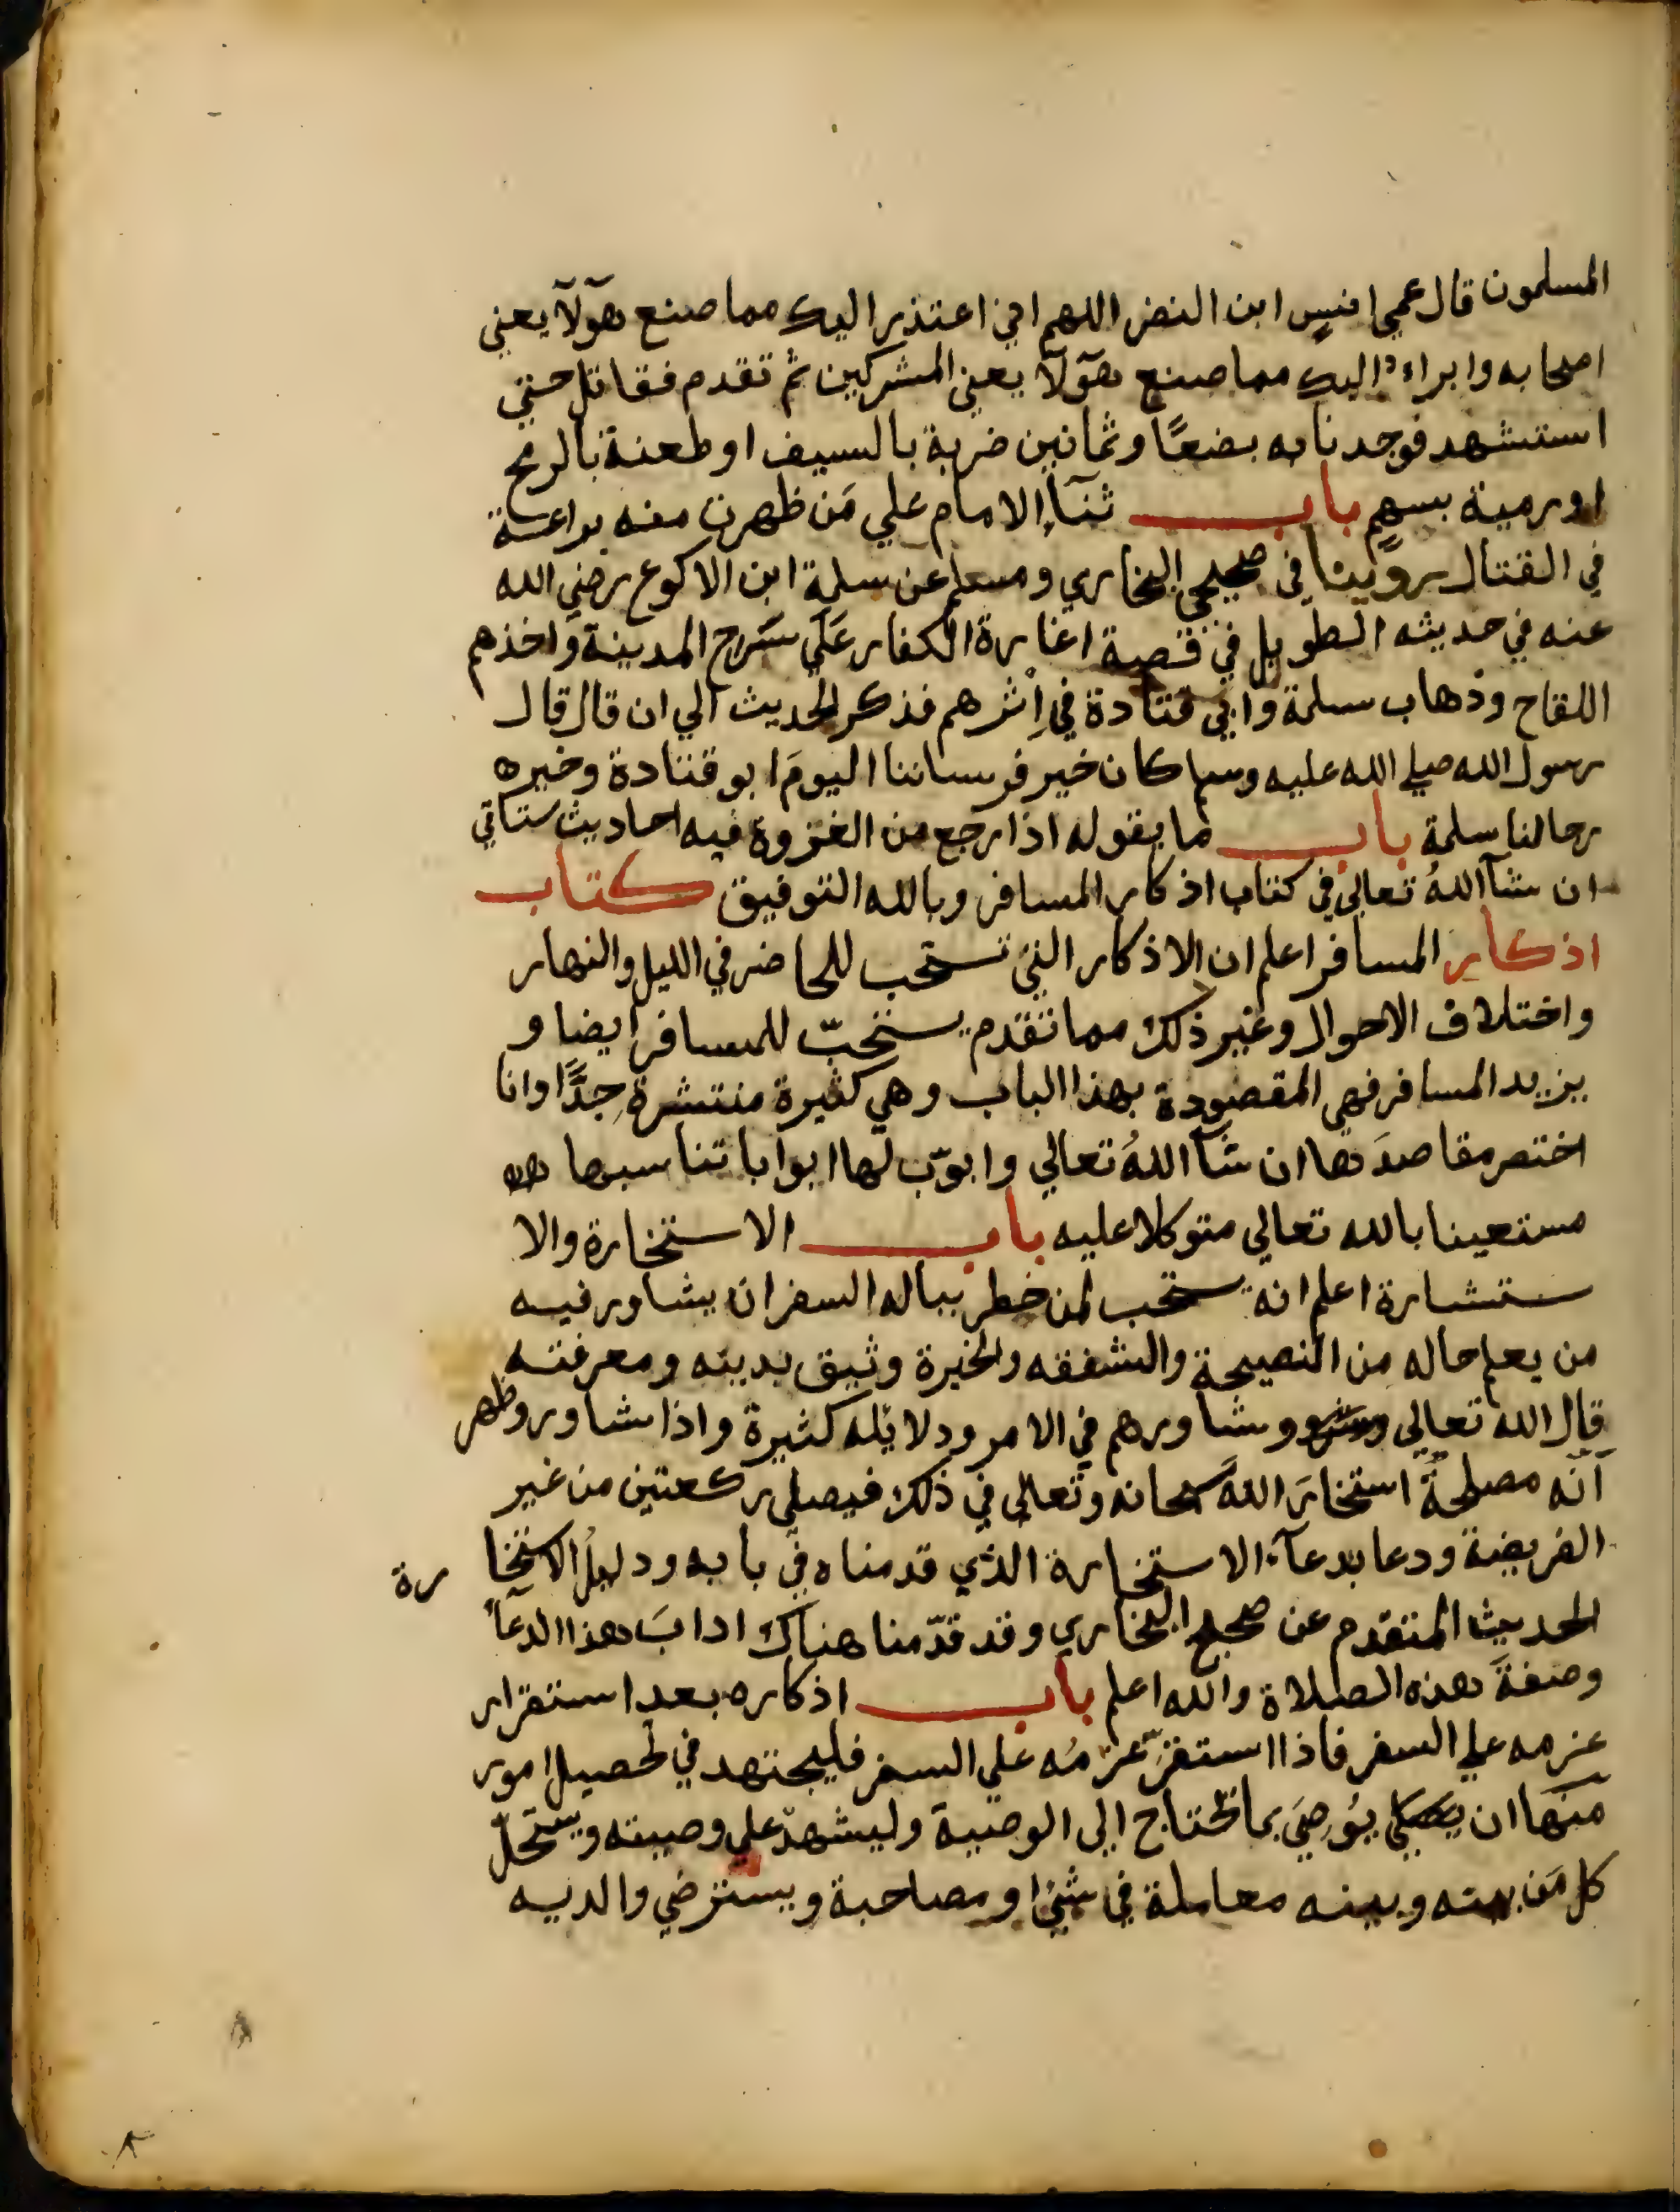 المسلمون قال عمي انس ابن النضر اللهم اني اعتذر اليك مما صنع هؤلآ يعني
اصحابه وابراء اليك مما صنع هؤلآ يعني المشركين ثم تقدم فقاتل حتي
استشهد فوجدنا به بضعًا وثمانين ضربة بالسيف او طعنة بالرمح
او رمية بسهم باب ثنآء الامام علي مَن ظهرت منه براعة
في القتال روّينا في صحيحي البخاري ومسلم عن سلمة ابن الاكوع رضي الله
عنه في حديثه الطويل في قصة اغارة الكفار عَلَي سَرح المدينة واخذهم
اللقاح وذهاب سلمة وابي قتادة في اِثرهم فذكر الحديث الي ان قال قال
رسول الله صلي الله عليه وسلم كان خير فرساننا اليومَ ابو قتادة وخير
رجالنا سلمة باب ما يقوله اذا رجع من الغزوة فيه احاديث ستاتي
ان شآ اللهُ تعالي في كتاب اذكار المسافر وبالله التوفيق كتاب
اذكار المسافر اعلم ان الاذكار التي تستحب للحاضر في الليل والنهار
واختلاف الاحوال وغير ذلك مما تقدم يستحبّ للمسافر ايضا و
يزيد المسافر فهي المقصودة بهذا الباب وهي كثيرة منتشرة جِدًّا وانا
اختصر مقاصدَها ان شآ اللهُ تعالي وابوّب لها ابوابا تناسبها
مستعينا بالله تعالي متوكلا عليه باب الاستخارة والا
ستشارة اعلم انه يستحب لمن خطر بباله السفر ان يشاور فيه
من يعلم حاله من النصيحة والشفقه والخبرة وثيق بدينه ومعرفته
قال الله تعالي وشاورهم في الامر ودلايله كثيرة واذا شاور وظهر
اَنّه مصلحةٌ استخارَ اللهَ سبحانه وتعالي في ذلك فيصلي ركعتين من غير
الفريضة ودعا بدعآء الاستخارة الذي قدمناه في بابه ودليلُ الاستخا رة
الحديث المتقدم عن صحيح البخاري وقد قدّمنا هناك ادابَ هذا الدعآء
وصفةَ هذه الصلاة والله اعلم باب اذكاره بعد استقرار
عزمه علي السفر فاذا استقرّ عزمُه علي السفر فليجتهد في تحصيل امور
منها ان يُوصِيَ بما تحتاج الي الوصية وليشهدْ علي وصيته ويستحلّ
كل مَن بينه وبينه معاملة في شئ او مصاحبة ويسترضي والديه